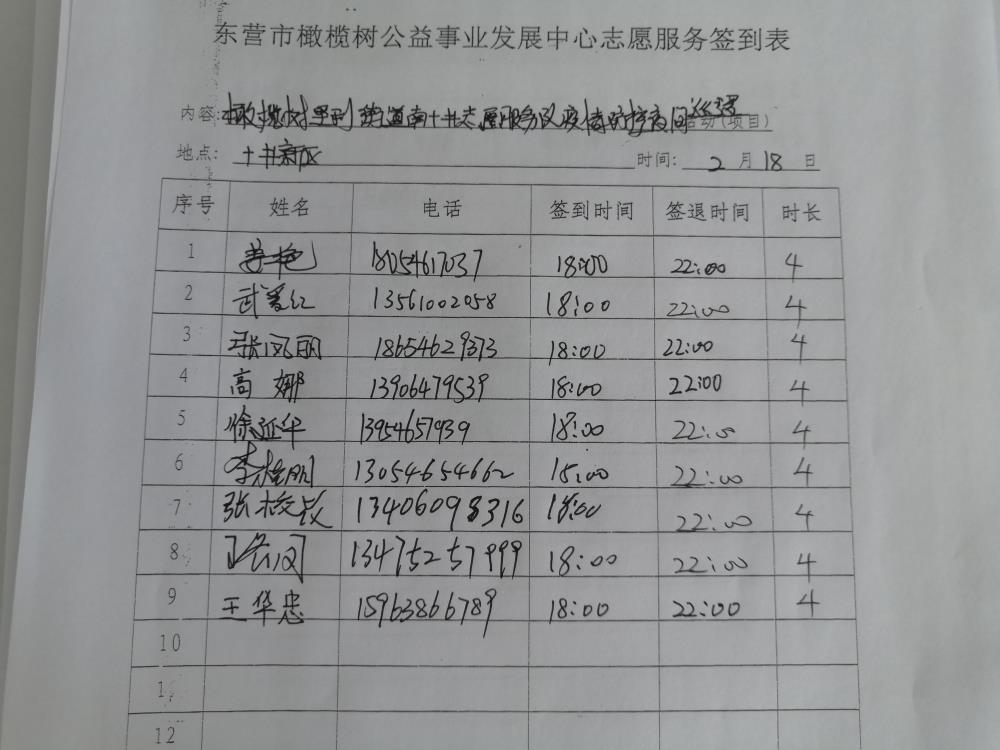 东营市橄榄树公益事业发展中心志愿服务签到表
内容:橄榄树 街道南十书志愿服务队疫情防控夜间巡逻活动(项目)
地点: 十书新区 时间: 2 月 18 日
序号 姓名 电话 签到时间 签退时间 时长
1 姜艳 18054617037 18:00 22:00 4
2 武爱红 13561002058 18:00 22:00 4
3 张凤丽 18654629373 18:00 22:00 4
4 高娜 13906479539 18:00 22:00 4
5 徐延华 13954657939 18:00 22:00 4
6 李 13054654662 18:00 22:00 4
7 张 13406098316 18:00 22:00 4
8 13475257999 18:00 22:00 4
9 王华忠 15963866789 18:00 22:00 4
10
11
12